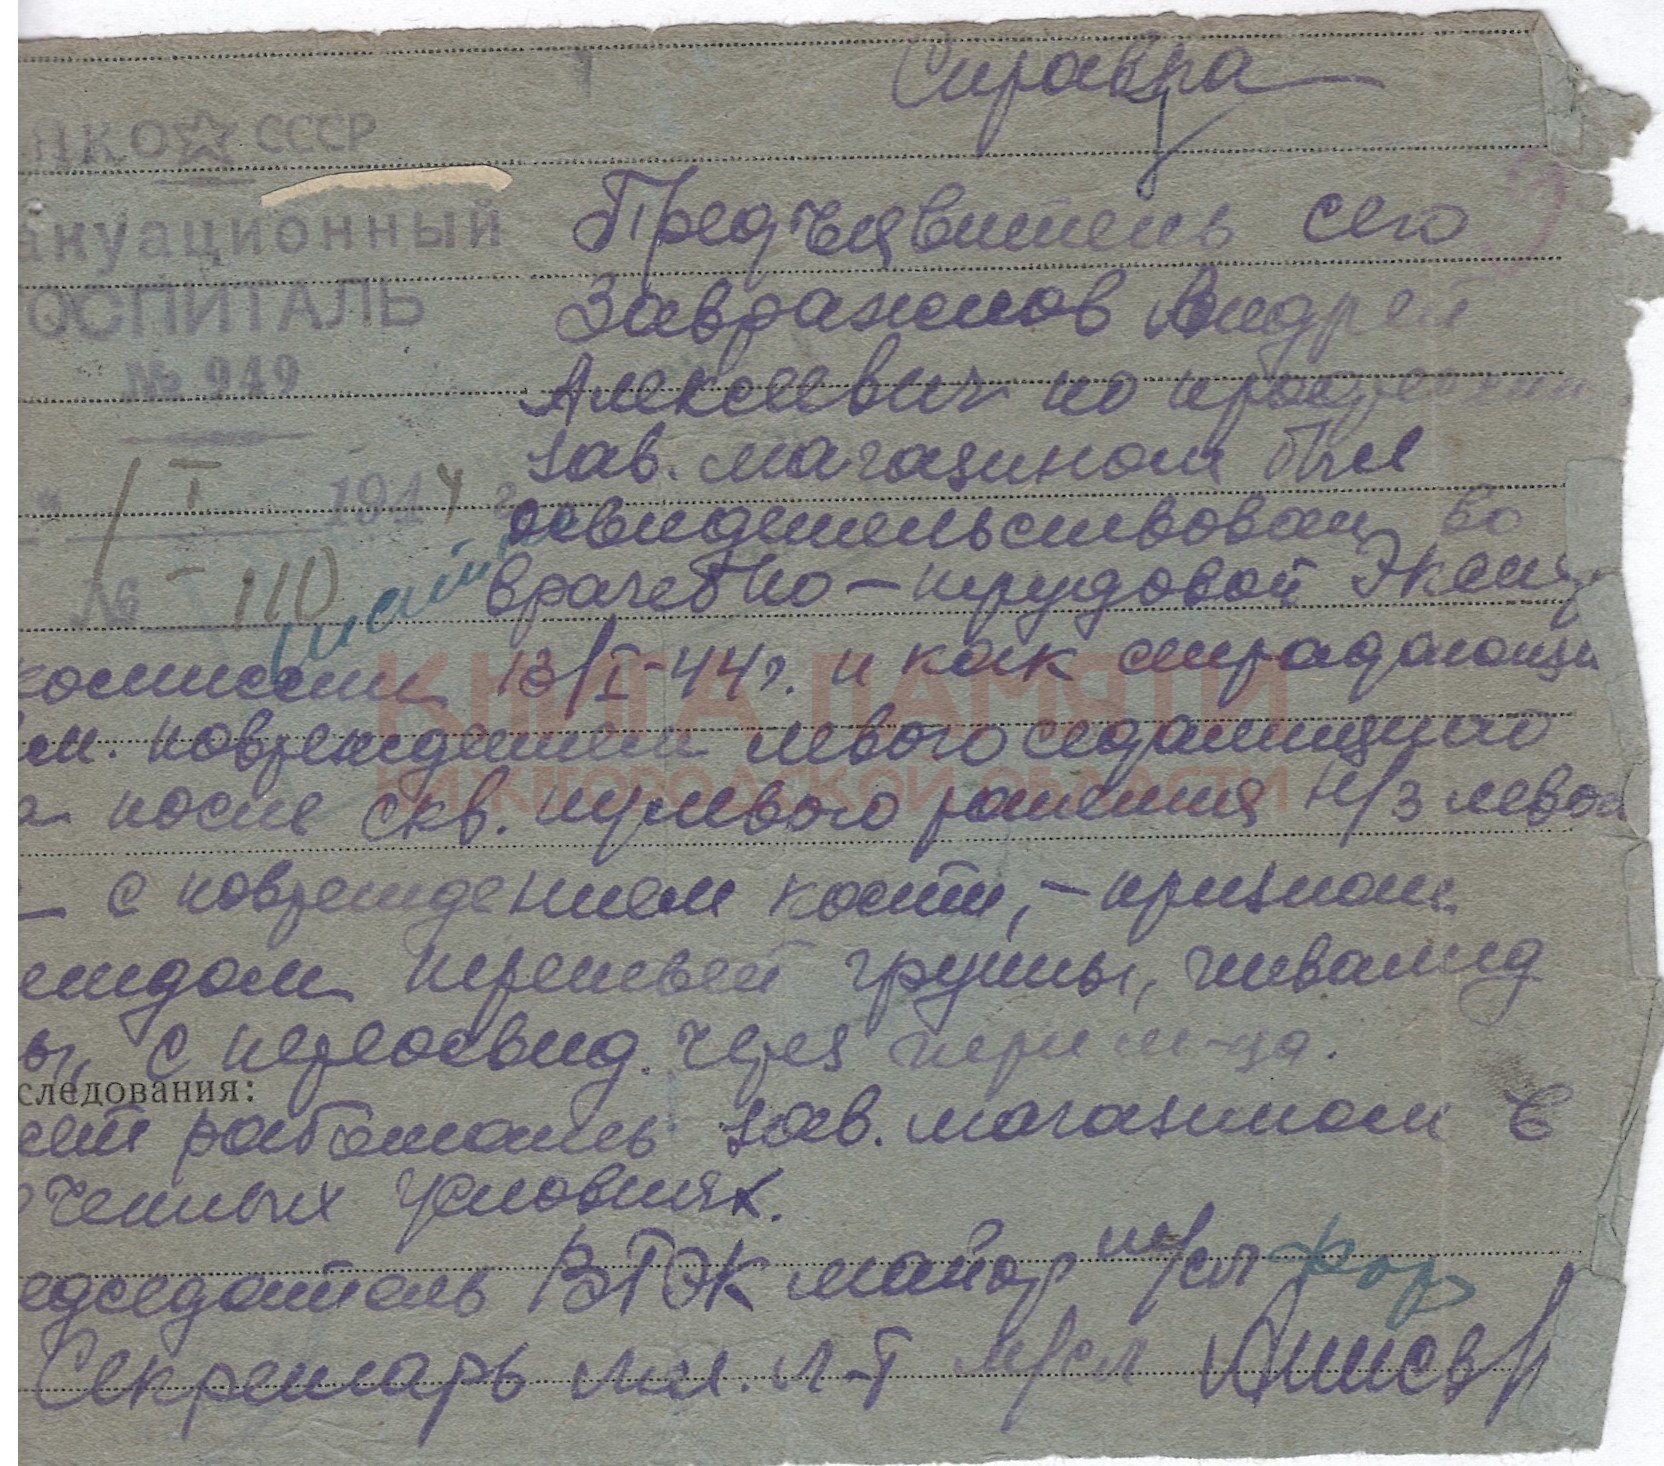 Справка
НКО СССР
акуационный
ГОСПИТАЛЬ
№ 949
1 I 1944 г.
№ 110
Предъявитель сего
Завражнов Андрей
Алексеевич по профессии
зав. магазином был
освидетельствован во
врачебно-трудовой Эксп
комиссии 13/I-44г. и как страдающи
повреждением левого седалищного
после скв. пулевого ранения н/з левой
с повреждением кости, - признан
третьей группы, инвалид
ы, с переосвид. через три м-ца.
следования:
ет работать зав. магазином в
ченных условиях.
едседатель ВТЭК майор м/сл
Секретарь мл. л-т м/сл
КНИГА ПАМЯТИ
НИЖЕГОРОДСКОЙ ОБЛАСТИ